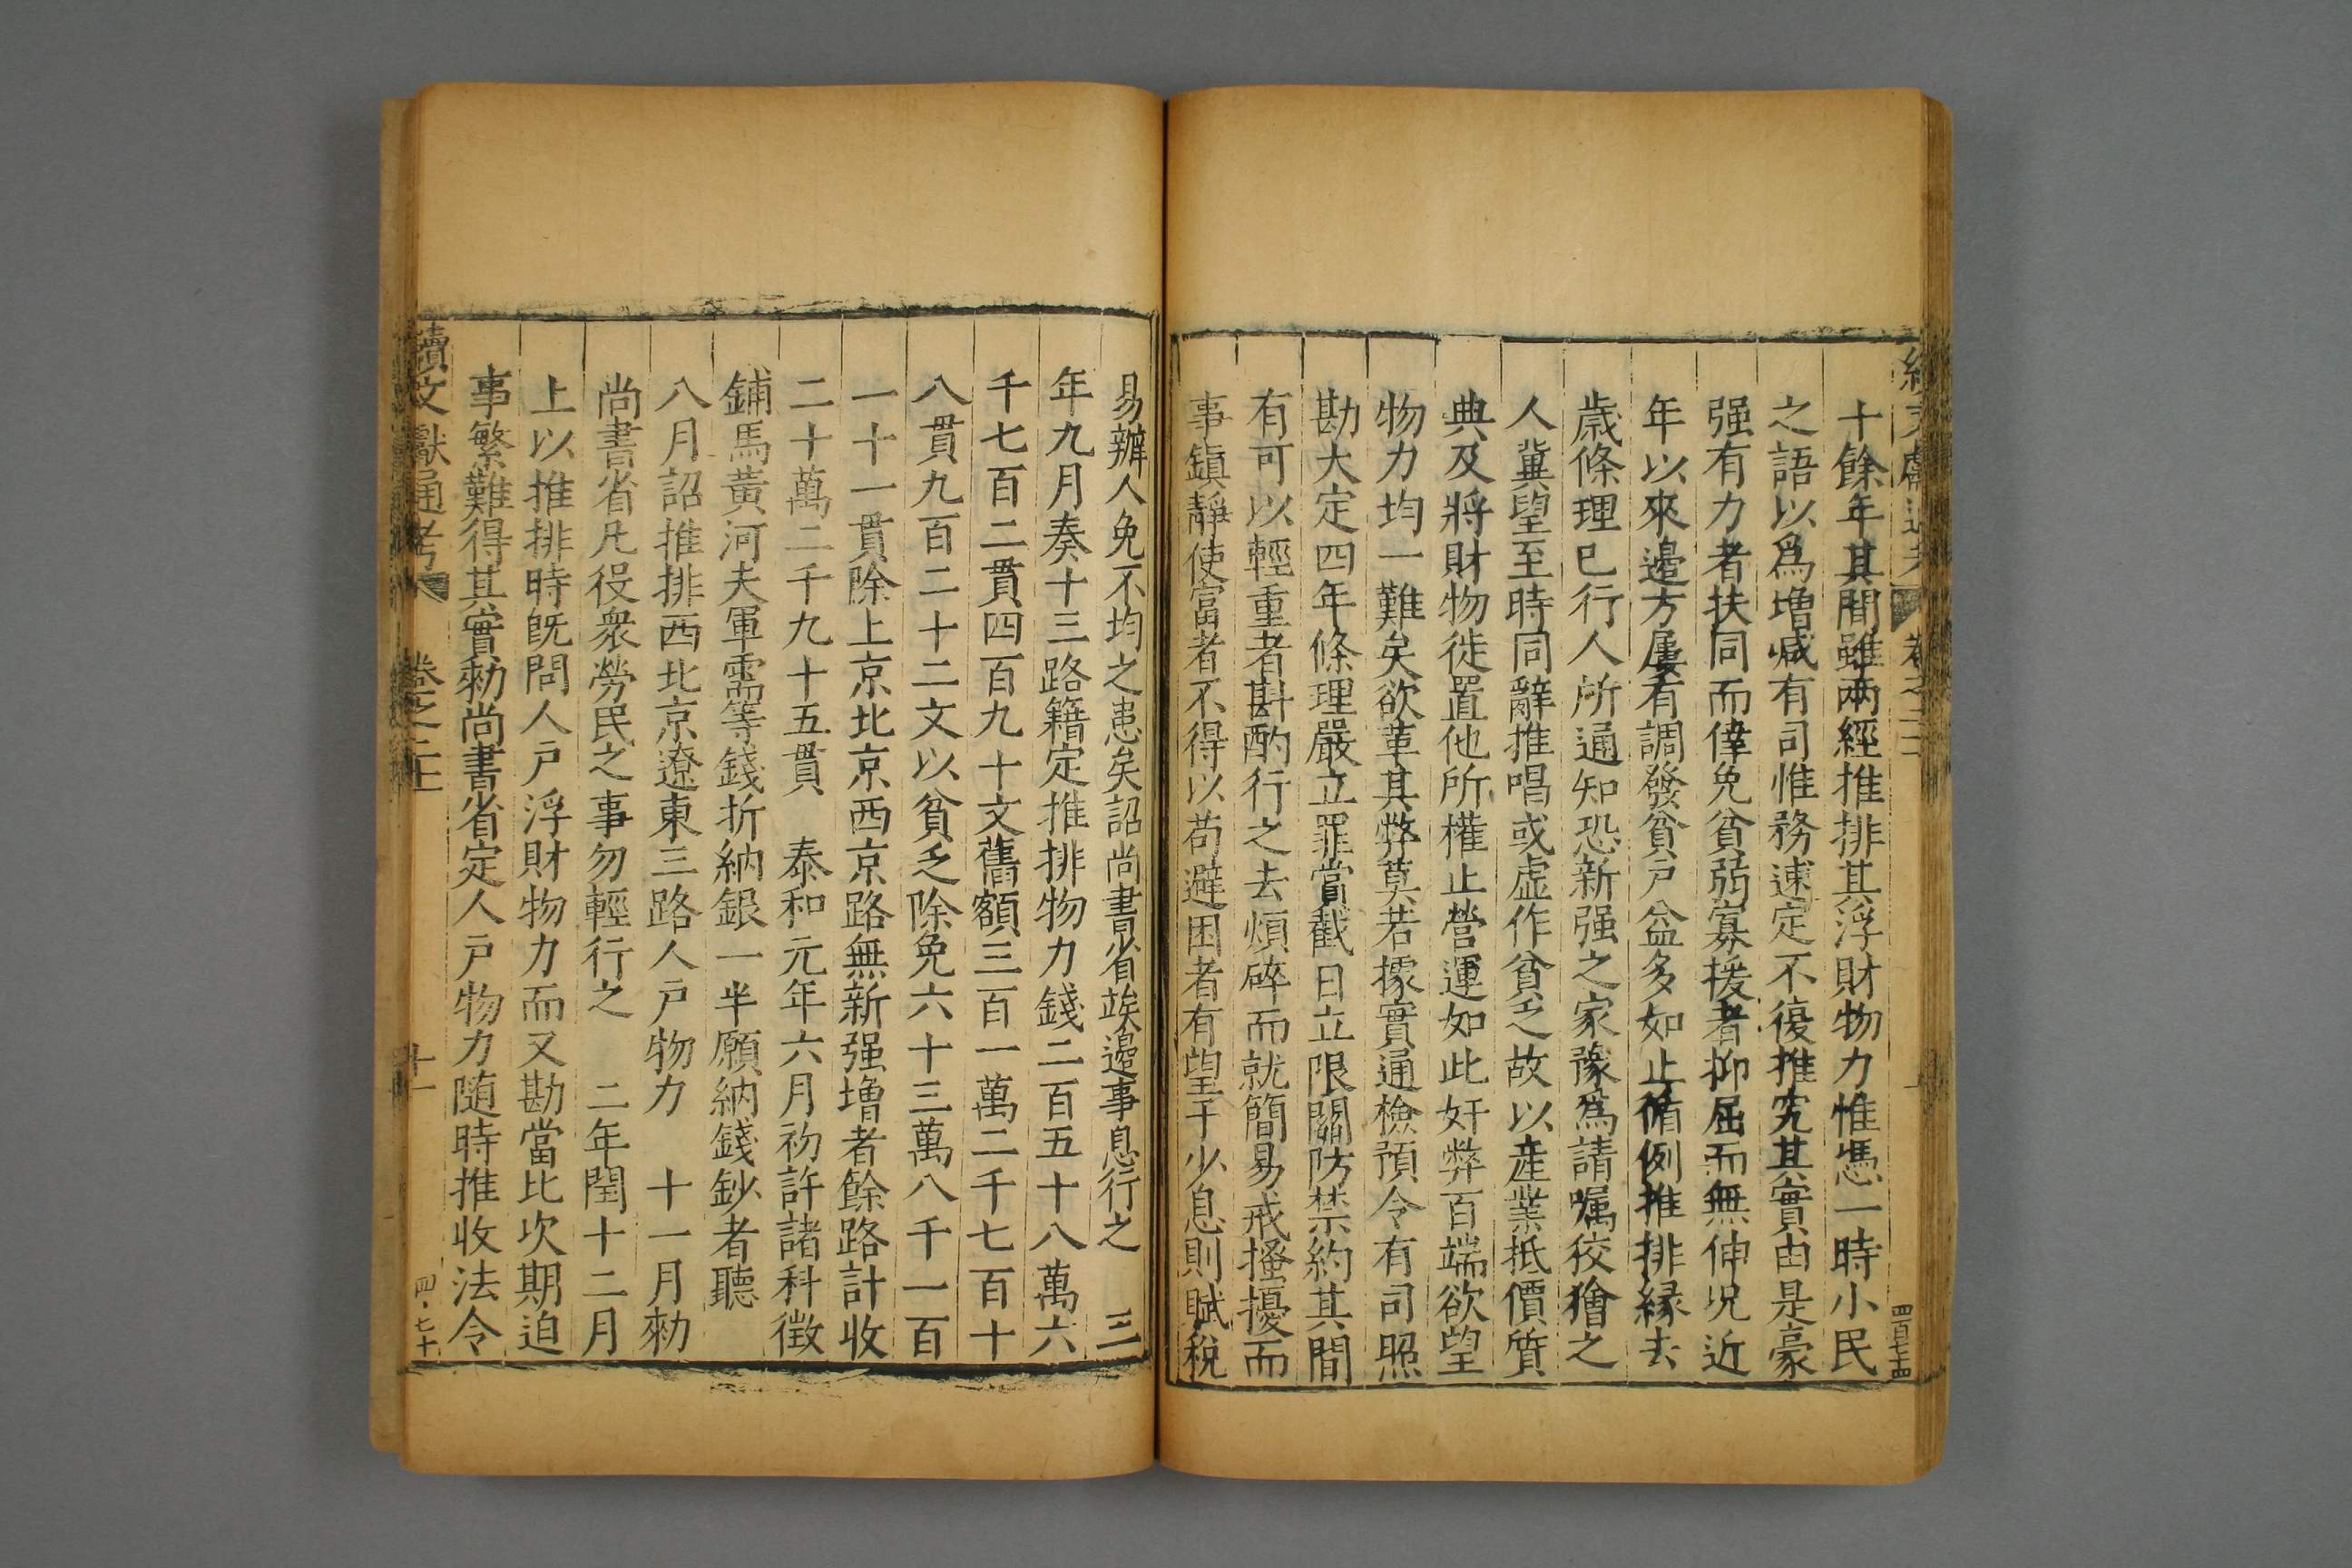 十餘年其間雖兩經推排其浮財物力惟憑一時小民
之語以爲增減有司惟務速定不復推究其實由是豪
强有力者扶同而倖免貧弱寡援者抑屈而無伸況近
年以來邊方屢有調發貧戶益多如止循例推排緣去
歲條理已行人所通知恐新强之家豫爲請嘱狡獪之
人冀望至時同辭推唱或虛作貧乏故以産業抵價質
典及將財物徙置他所權止營運如此奸弊百端欲望
物力均一難矣欲革其弊莫若據實通檢預令有司照
勘大定四年條理嚴立罪賞截日立限關防禁約其間
有可以輕重者斟酌行之去煩碎而就簡易戒搔擾而
事鎮靜使富者不得以苟避困者有望于少息則賦稅
易辦人免不均之患矣詔尚書省竢邊事息行之 三
年九月奏十三路籍定推排物力錢二百五十八萬六
千七百二貫四百九十文舊額三百一萬二千七百十
八貫九百二十二文以貧乏除免六十三萬八千一百
一十一貫除上京北京西京路無新强增者餘路計收
二十萬二千九十五貫 泰和元年六月初許諸科徵
鋪馬黃河夫軍需等錢折納銀一半願納錢鈔者聽
八月詔推排西北京遼東三路人戶物力 十一月勑
尚書省凡役衆勞民之事勿輕行之 二年閏十二月
上以推排時旣問人戶浮財物力而又勘當比次期迫
事繁難得其實勑尚書省定人戶物力隨時推收法令
續文獻通考 卷之二 十一